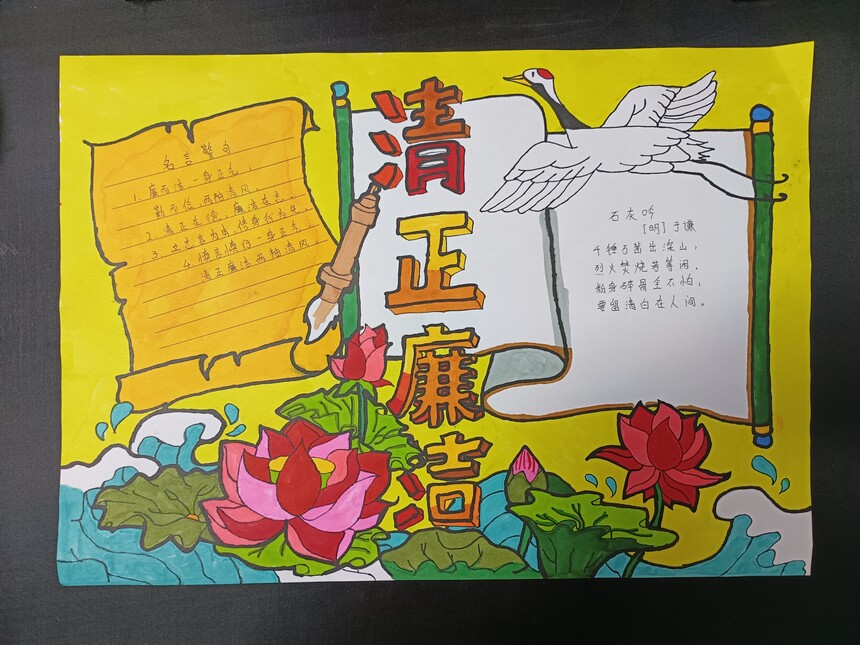 清正廉洁
名言警句
1. 廉而洁,一身正气,
勤而俭,两袖清风。
2. 清正在德,廉洁在志。
3. 立言为
4. 慎言慎行一身正气
清正廉洁两袖清风
石灰吟
[明]于谦
千锤万凿出深山,
烈火焚烧若等闲。
粉身碎骨全不怕,
要留清白在人间。